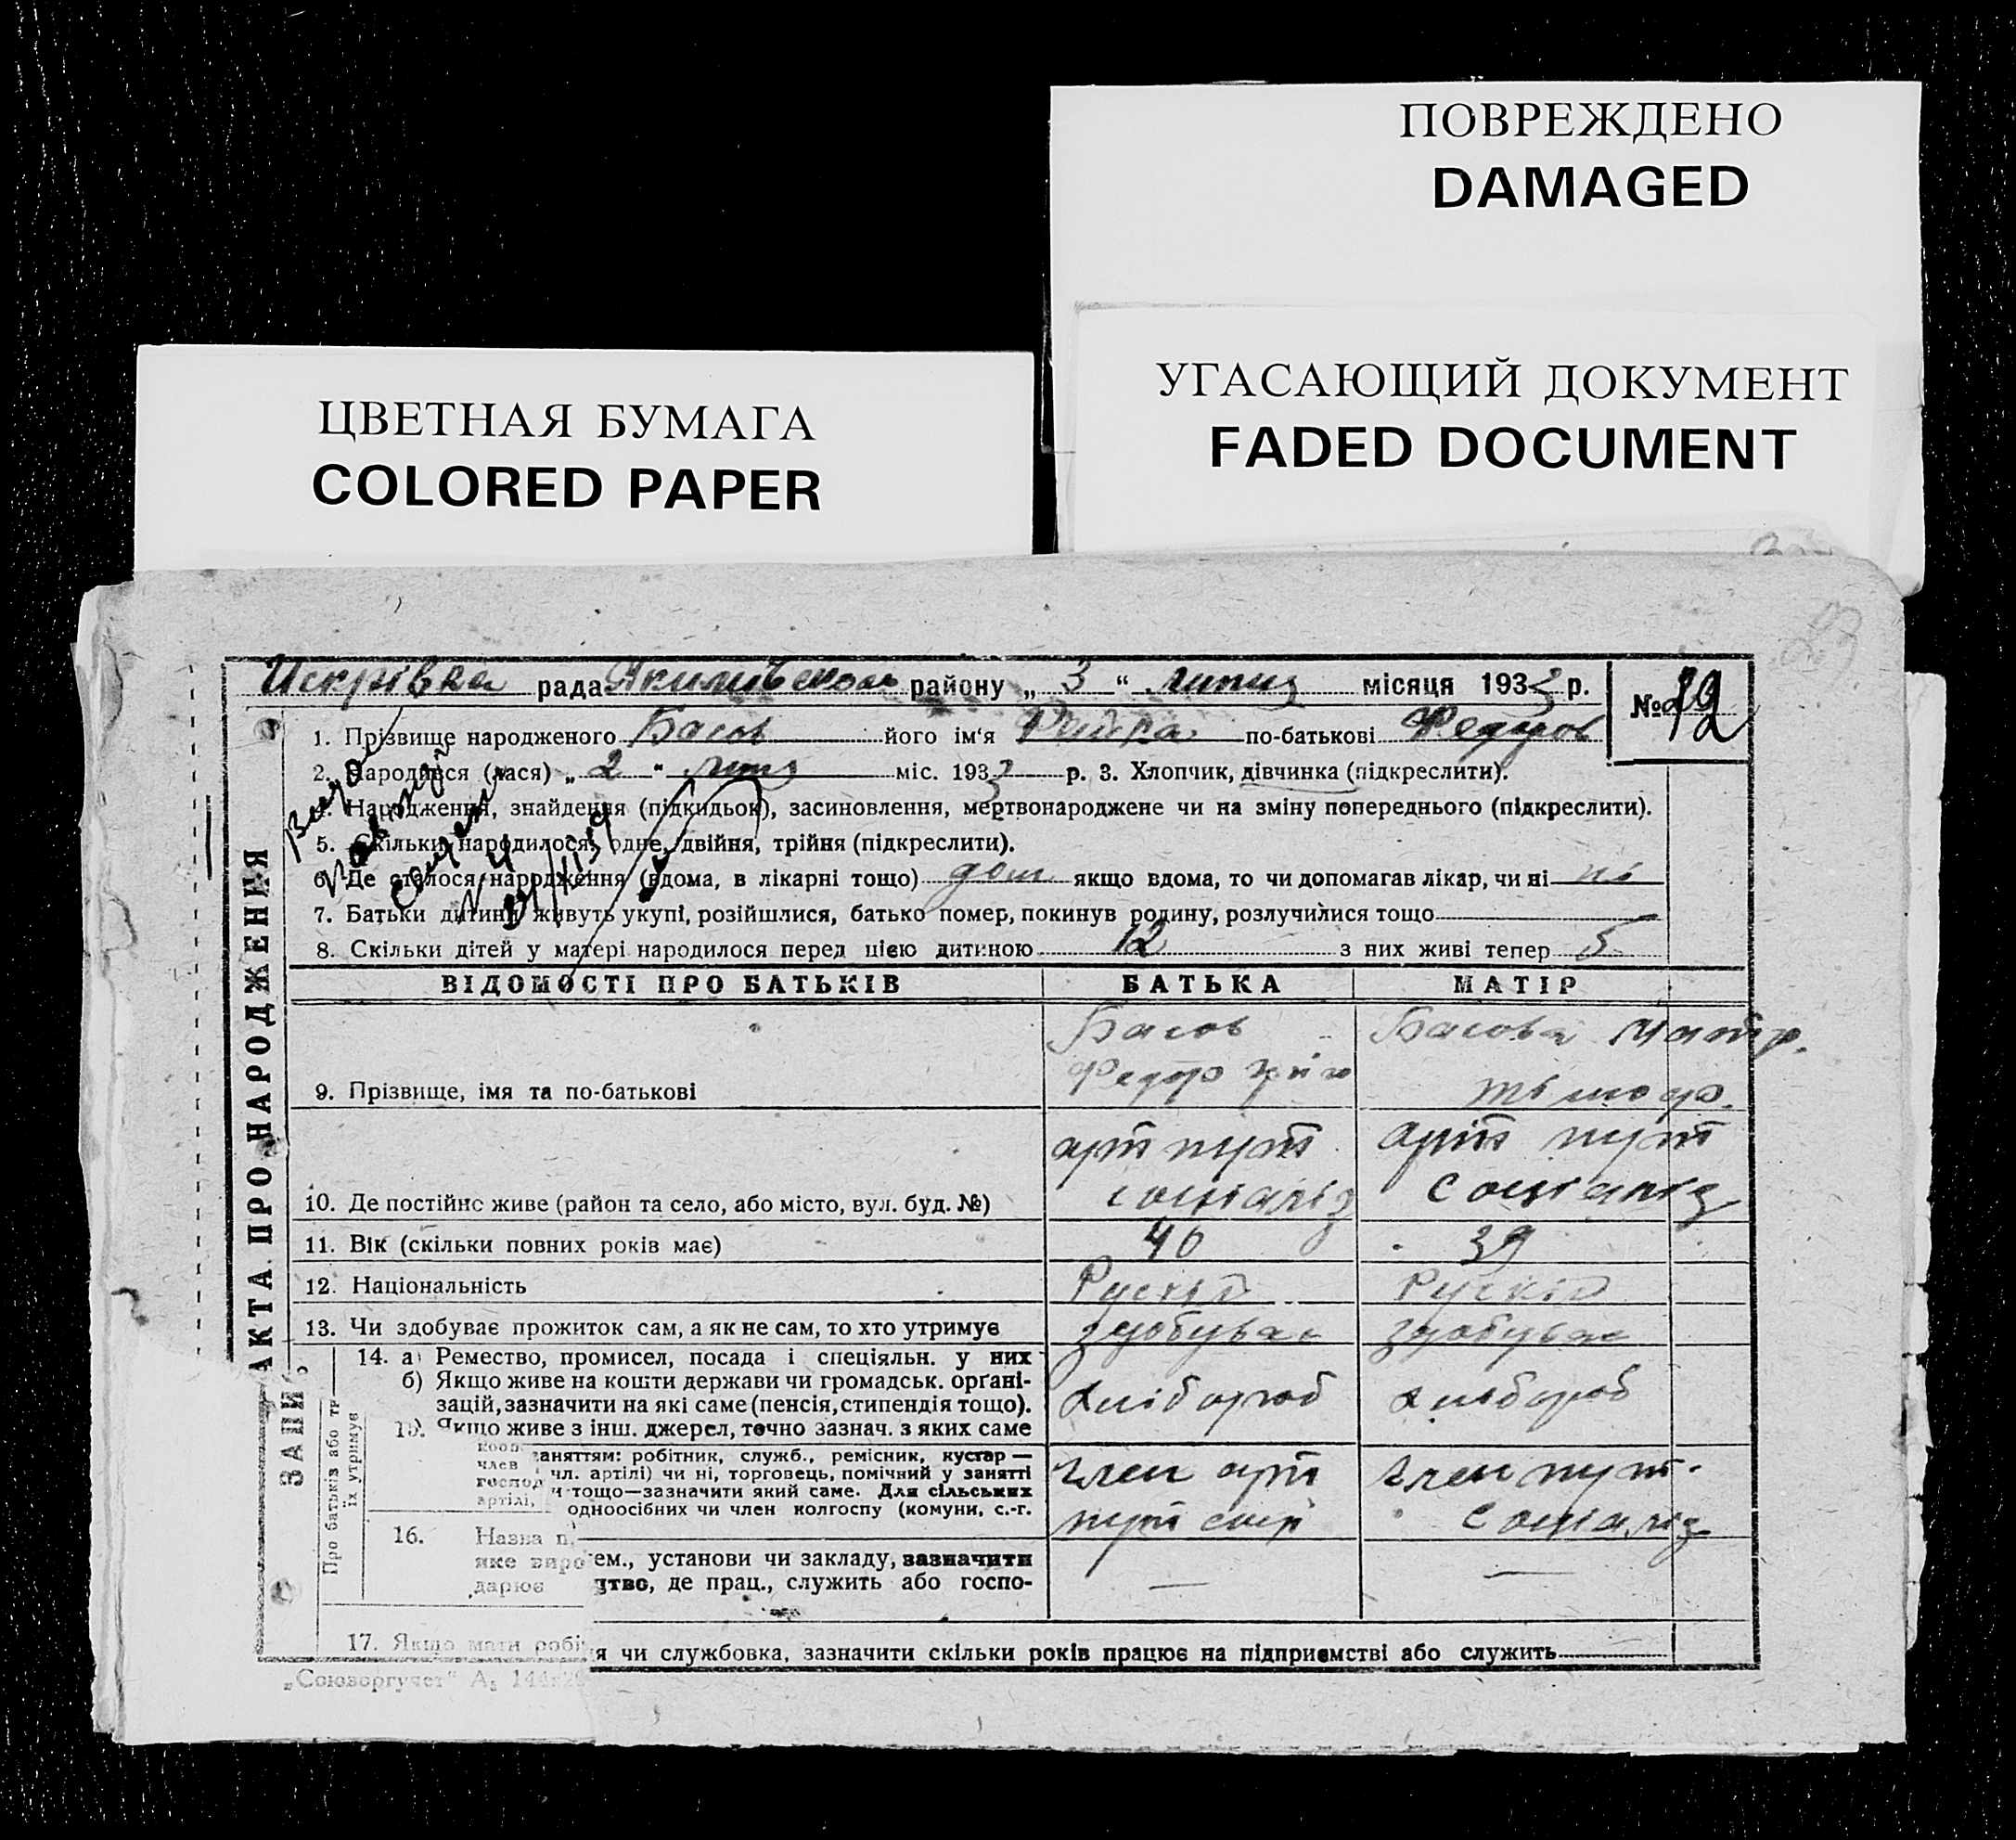 ПОВРЕЖДЕНО
DAMAGED
УГАСАЮЩИЙ ДОКУМЕНТ
FADED DOCUMENT
ЦВЕТНАЯ БУМАГА
COLORED PAPER
Искрівка рада Якимівського району „ 3 “ липня місяця 1933 р.
№
12
1. Прізвище народженого Басов його ім'я по-батькові Федоров
2. Народився (лася) „ 2 “ липня міс. 1933 р. 3. Хлопчик, дівчинка (підкреслити).
4. Народження, знайдення (підкидьок), засиновлення, мертвонароджене чи на зміну попереднього (підкреслити).
5. Скільки народилося: одне, двійня, трійня (підкреслити).
6. Де сталося народження (вдома, в лікарні тощо) дом якщо вдома, то чи допомагав лікар, чи ні ні
7. Батьки дитини живуть укупі, розійшлися, батько помер, покинув родину, розлучилися тощо
8. Скільки дітей у матері народилося перед цією дитиною 12 з них живі тепер 5
ЗАПИС АКТА ПРО НАРОДЖЕННЯ
ВІДОМОСТІ ПРО БАТЬКІВ БАТЬКА МАТІР
Басов Басова
9. Прізвище, імя та по-батькові Федор
арт пут арт пут
10. Де постійно живе (район та село, або місто, вул. буд. №) соціаліз соціаліз
11. Вік (скільки повних років має) 40 39
12. Національність Рускій Рускій
13. Чи здобуває прожиток сам, а як не сам, то хто утримує здобуває здобуває
Про батьків або тр
їх утримує
14. а) Ремество, промисел, посада і спеціяльн. у них
б) Якщо живе на кошти держави чи громадськ. орґані-
зацій, зазначити на які саме (пенсія, стипендія тощо). хлібороб хлібороб
15. Якщо живе з інш. джерел, точно зазнач. з яких саме
заняттям: робітник, служб., ремісник, кустар —
член чл. артілі) чи ні, торговець, помічний у занятті член арт член пут.
господ и тощо—зазначити який саме. Для сільських
артілі, одноосібних чи член колгоспу (комуни, с.-г. пут соц соціаліз
16. Назва п
яке виро ем., установи чи закладу, зазначити
дарює цтво, де прац., служить або госпо- — —
17. Якщо мати робі я чи службовка, зазначити скільки років працює на підприємстві або служить
„Союзоргучет“